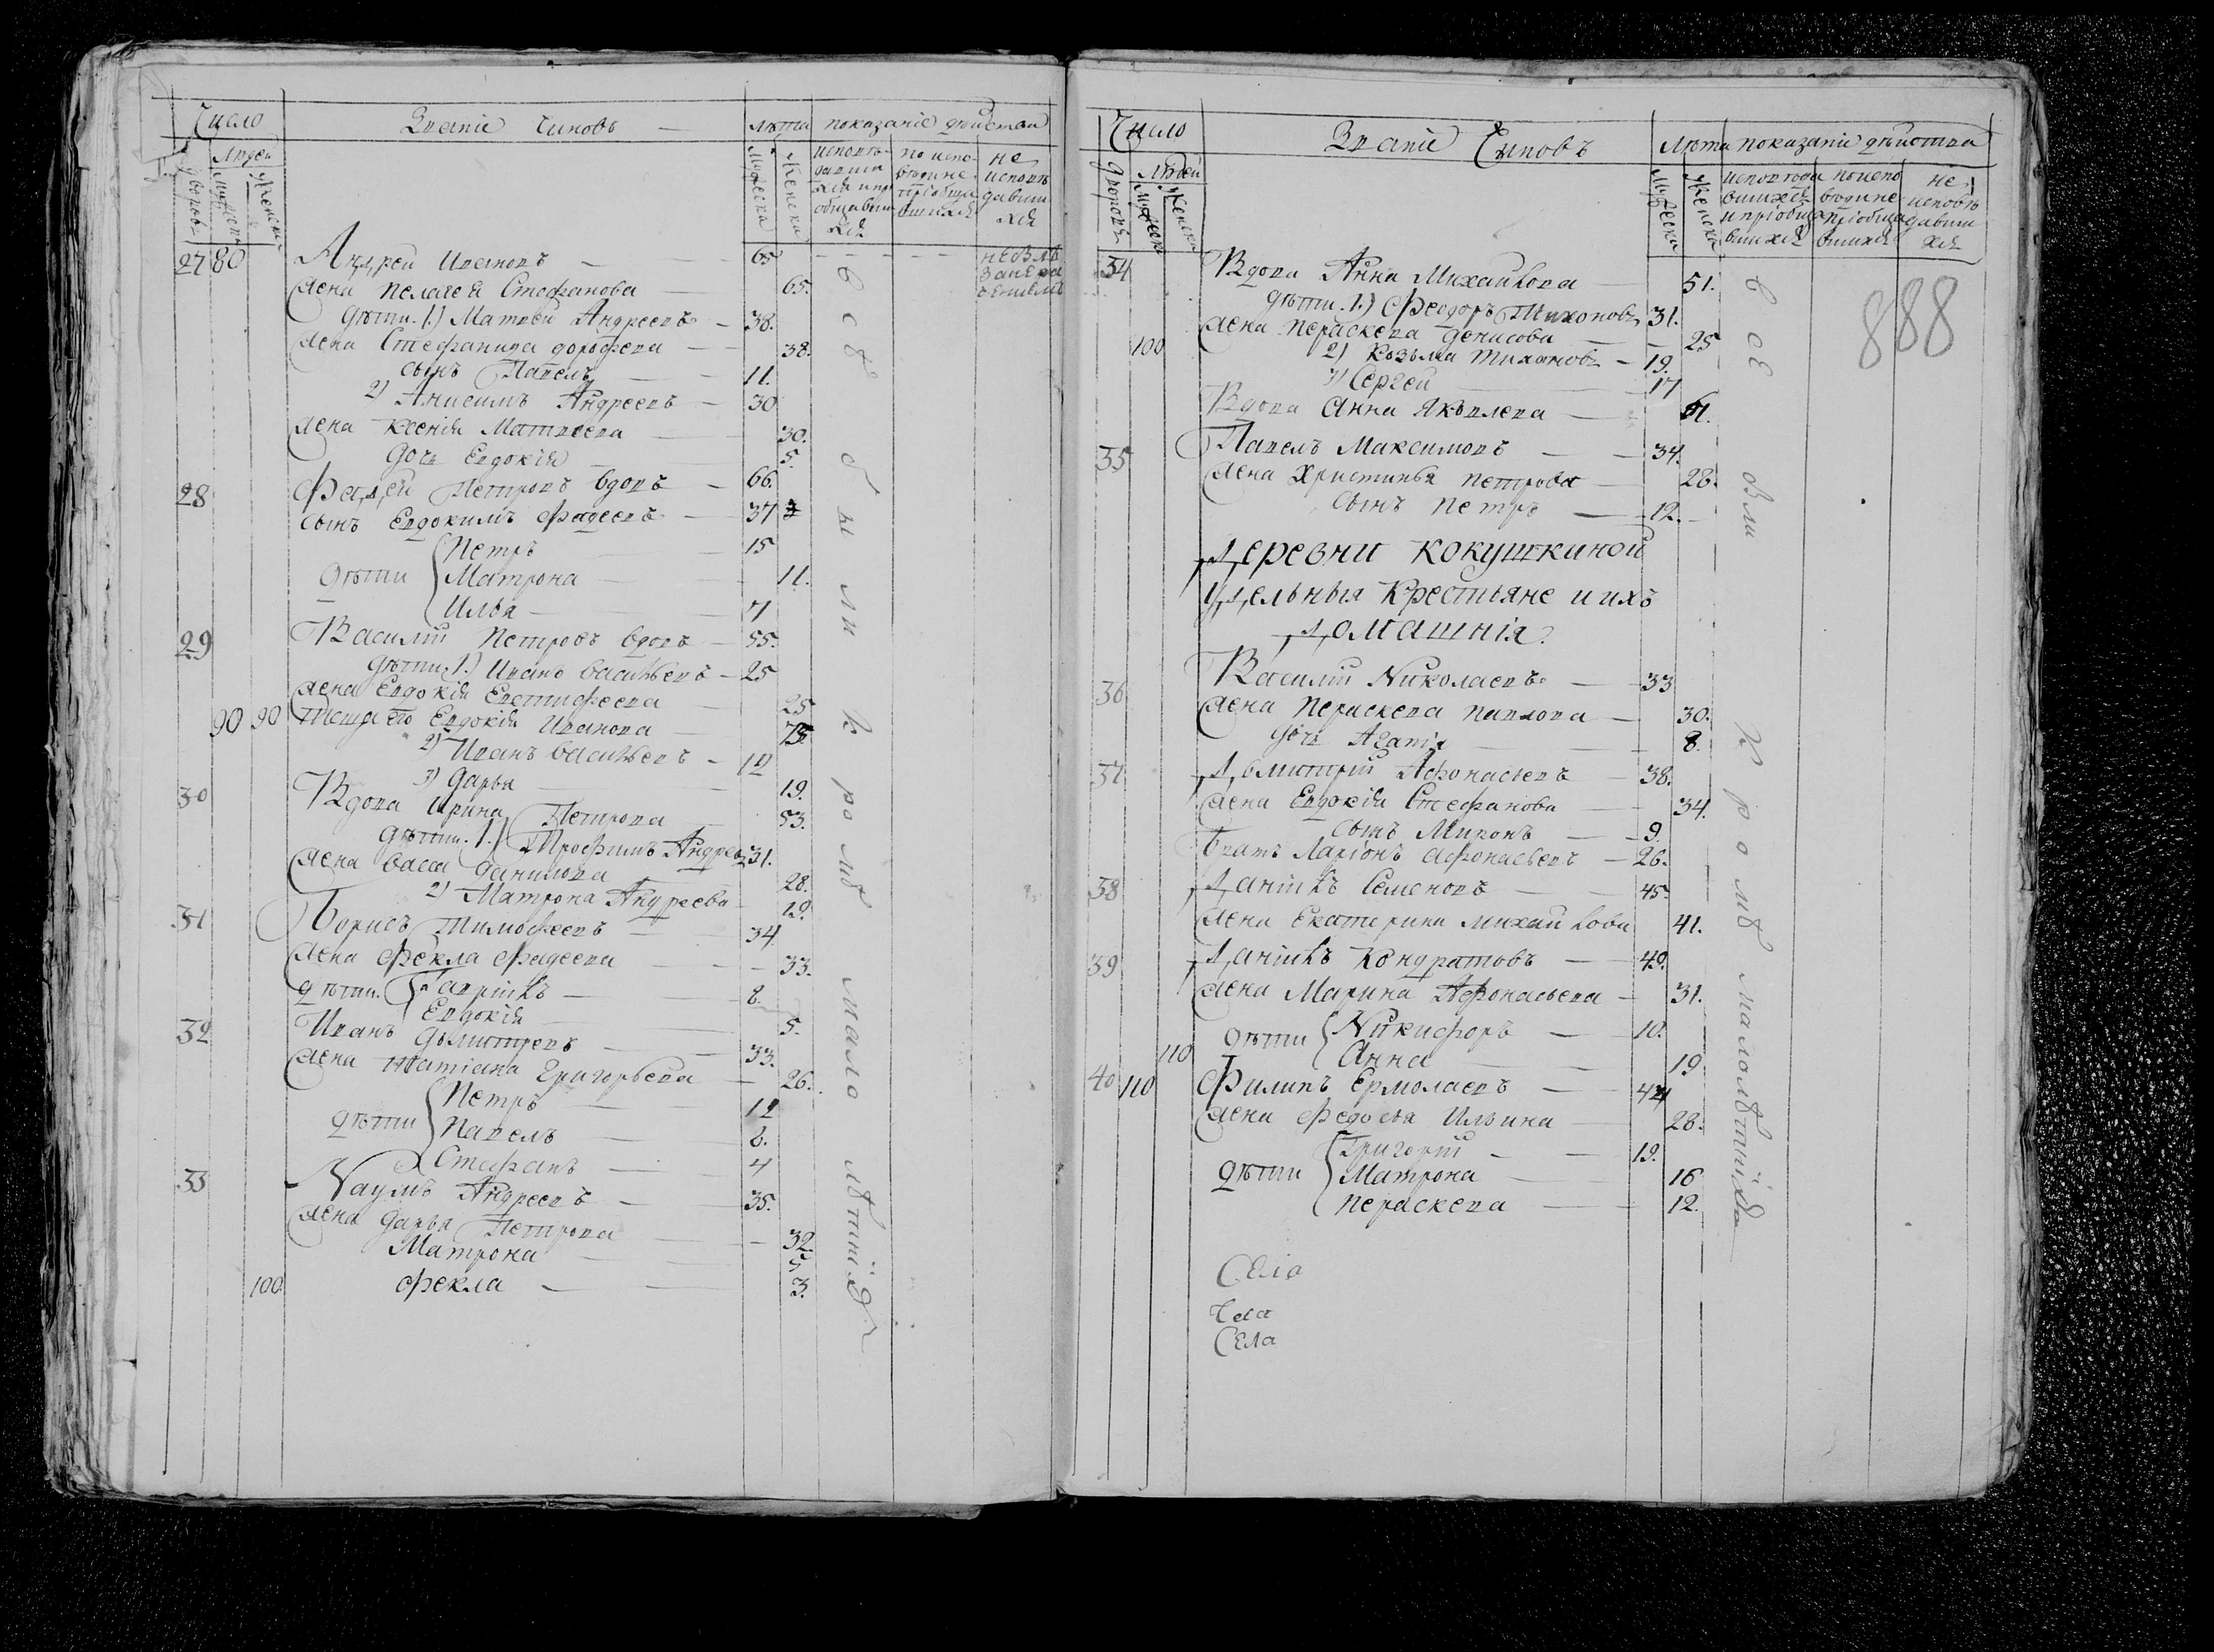 Число
Званіе Чиновъ
Лѣта
показаніе дѣйства
Людей
дворовъ
Мужеска
Женска
Мужеска
Женска
исповѣ-
давши
хся и прі
общавши
хся
по испо
вѣди не
пріобща
вшихся
не
исповѣ
давши
хся
27 80 Андрей Ивановъ — 65
жена Пелагея Стефанова 65.
дѣти. 1.) Матвей Андреевъ — 38.
жена Стефанида дорофеева — 38.
сынъ Павелъ — 11.
2) Анисимъ Андреевъ — 30
жена Ксенія Матвеева — 30.
дочь Евдокія — 5.
28 Фадѣй Петровъ вдовъ — 66.
сынъ Евдокимъ Фадеевъ — 37
дѣти
Петръ — 15
Матрона — 11.
Илья — 7
29 Василій Петровъ вдовъ — 55.
дѣти. 1.) Иванъ васильевъ — 25
жена Евдокія Евстифеева 25
90 90 теща его Евдокія Иванова 75.
2) Иванъ васильевъ — 12
3) Дарья 19.
30 Вдова Ирина Петрова 53.
дѣти. 1.) Трофимъ Андреевъ 31.
жена васса данилова 28.
2) Матрона Андреева 19.
31 Борисъ Тимофеевъ 34
жена Фекла Фадеева — 33.
дѣти.
Гавріилъ — 8.
Евдокія 5.
32 Иванъ дьмитревъ — 33.
жена Татіана Григорьева — 26.
дѣти
Петръ — 12
Павелъ — 8.
Стефанъ — 4
33 Наумъ Андреевъ — 35.
жена Дарья Петрова — 32.
Матрона 5
100 Фекла — 3.
всѣ были кромѣ малолѣтнихъ
Число
Званіе Чиновъ
Лѣта
показаніе дѣйства
дворовъ
Людей
Мужеска
Женска
Мужеска
Женска
исповѣда
вшихся
и пріобща
вшихся
по испо
вѣди не
пріобща
вшихся
не
исповѣ
давши
хся
888
34 Вдова Анна Михайлова 51.
дѣти. 1.) Феодоръ Тихоновъ 31.
жена Пераскева денисова — 25
100 2) Козьма Тихоновъ — 19.
3) Сергей 17
Вдова Анна Яковлева — 61.
35 Павелъ Максимовъ — 34.
жена Христинья Петрова 28.
сынъ Петръ — 12.
Деревни Кокушкиной
Удельныя Крестьяне и ихъ
Домашнія.
36 Василій Николаевъ — 33
жена Пераскева Павлова — 30.
дочь Агапія 8.
37 Дьмитрій Афонасьевъ — 38.
жена Евдокія Стефанова — 34.
сынъ Миронъ — 9.
Братъ Ларіонъ Афонасьевъ — 26.
38 Даніилъ Семеновъ — 45.
жена Екатерина Михайлова 41.
39 Даніилъ Кондратовъ — 49.
жена Марина Афонасьева — 31.
дѣти
Никифоръ — 10.
110 Анна — 19
40 110 Филипъ Ермолаевъ — 44
жена Федосья Ильина 28.
дѣти
Григорій — 19.
Матрона 16
Пераскева — 12.
всѣ были кромѣ малолѣтнихъ
Села
Села
Села